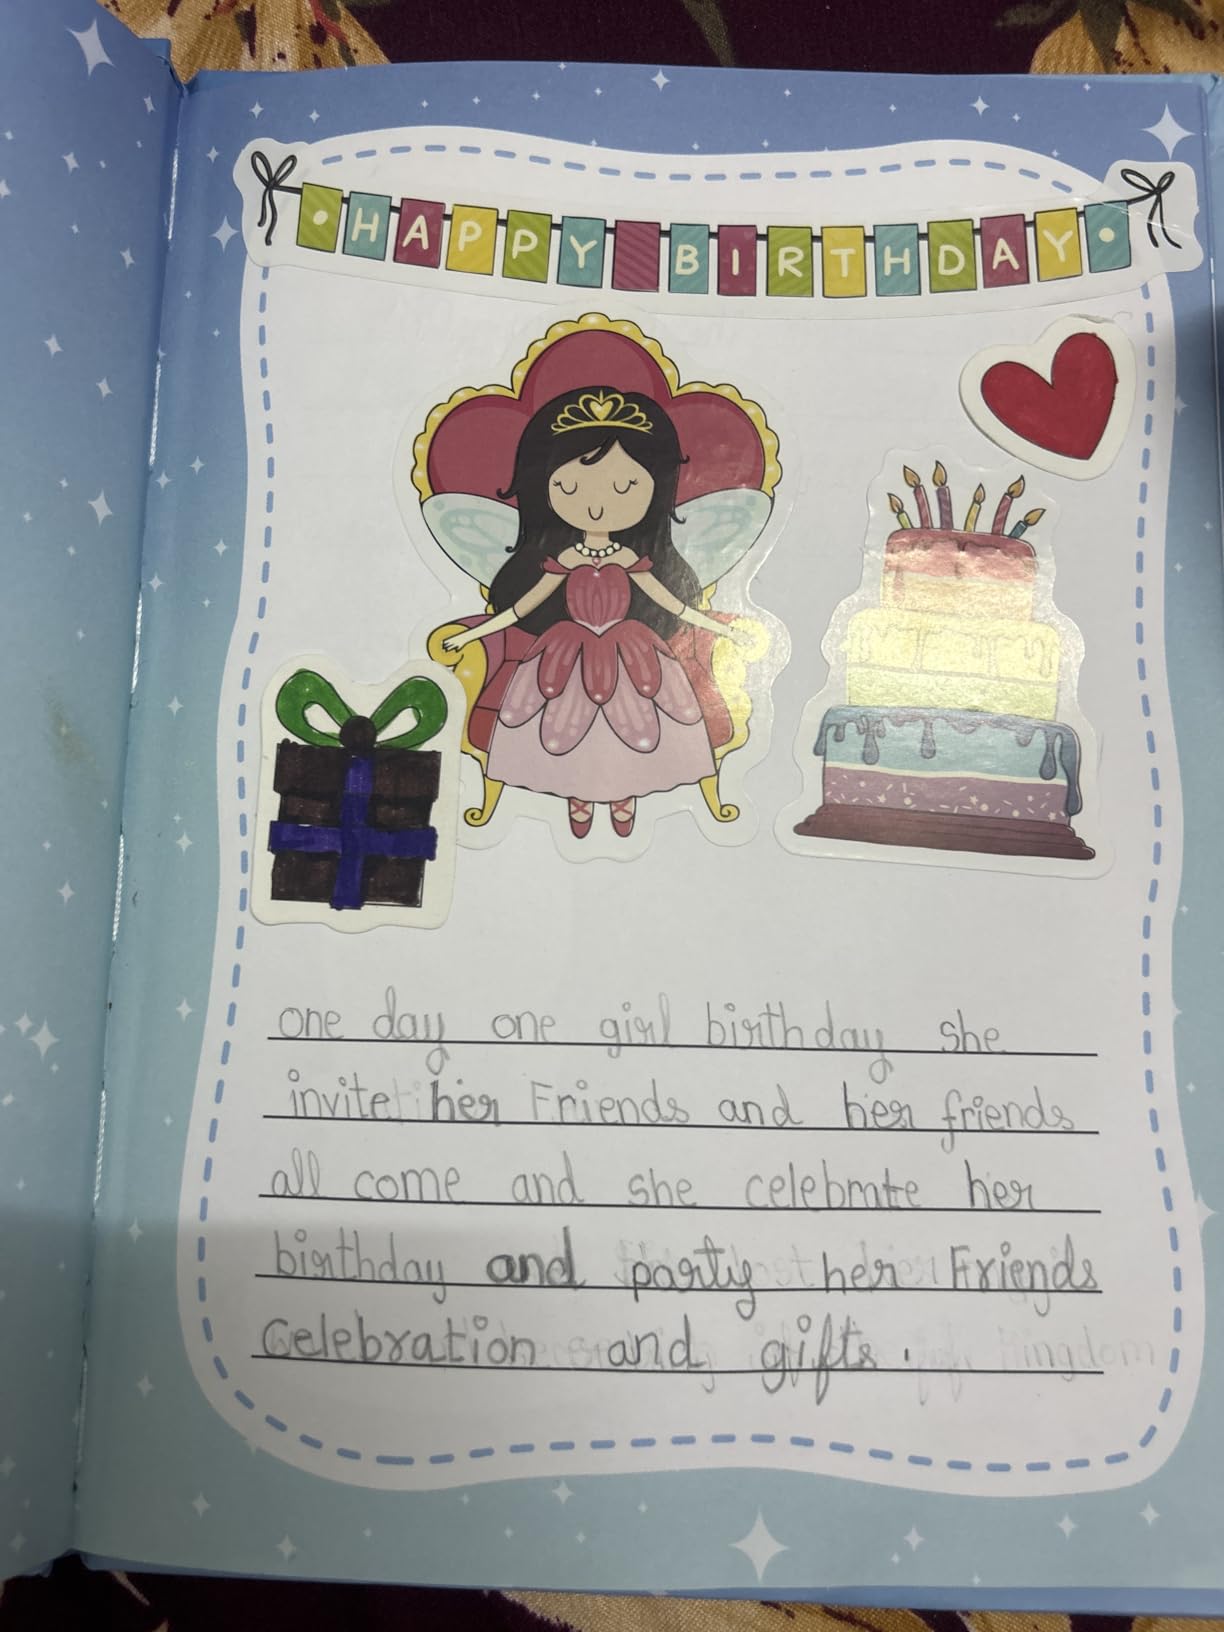 HAPPY BIRTHDAY
one day one girl birthday she
invite her Friends and her friends
all come and she celebrate her
birthday and party her Friends
celebration and gifts.
Kingdom